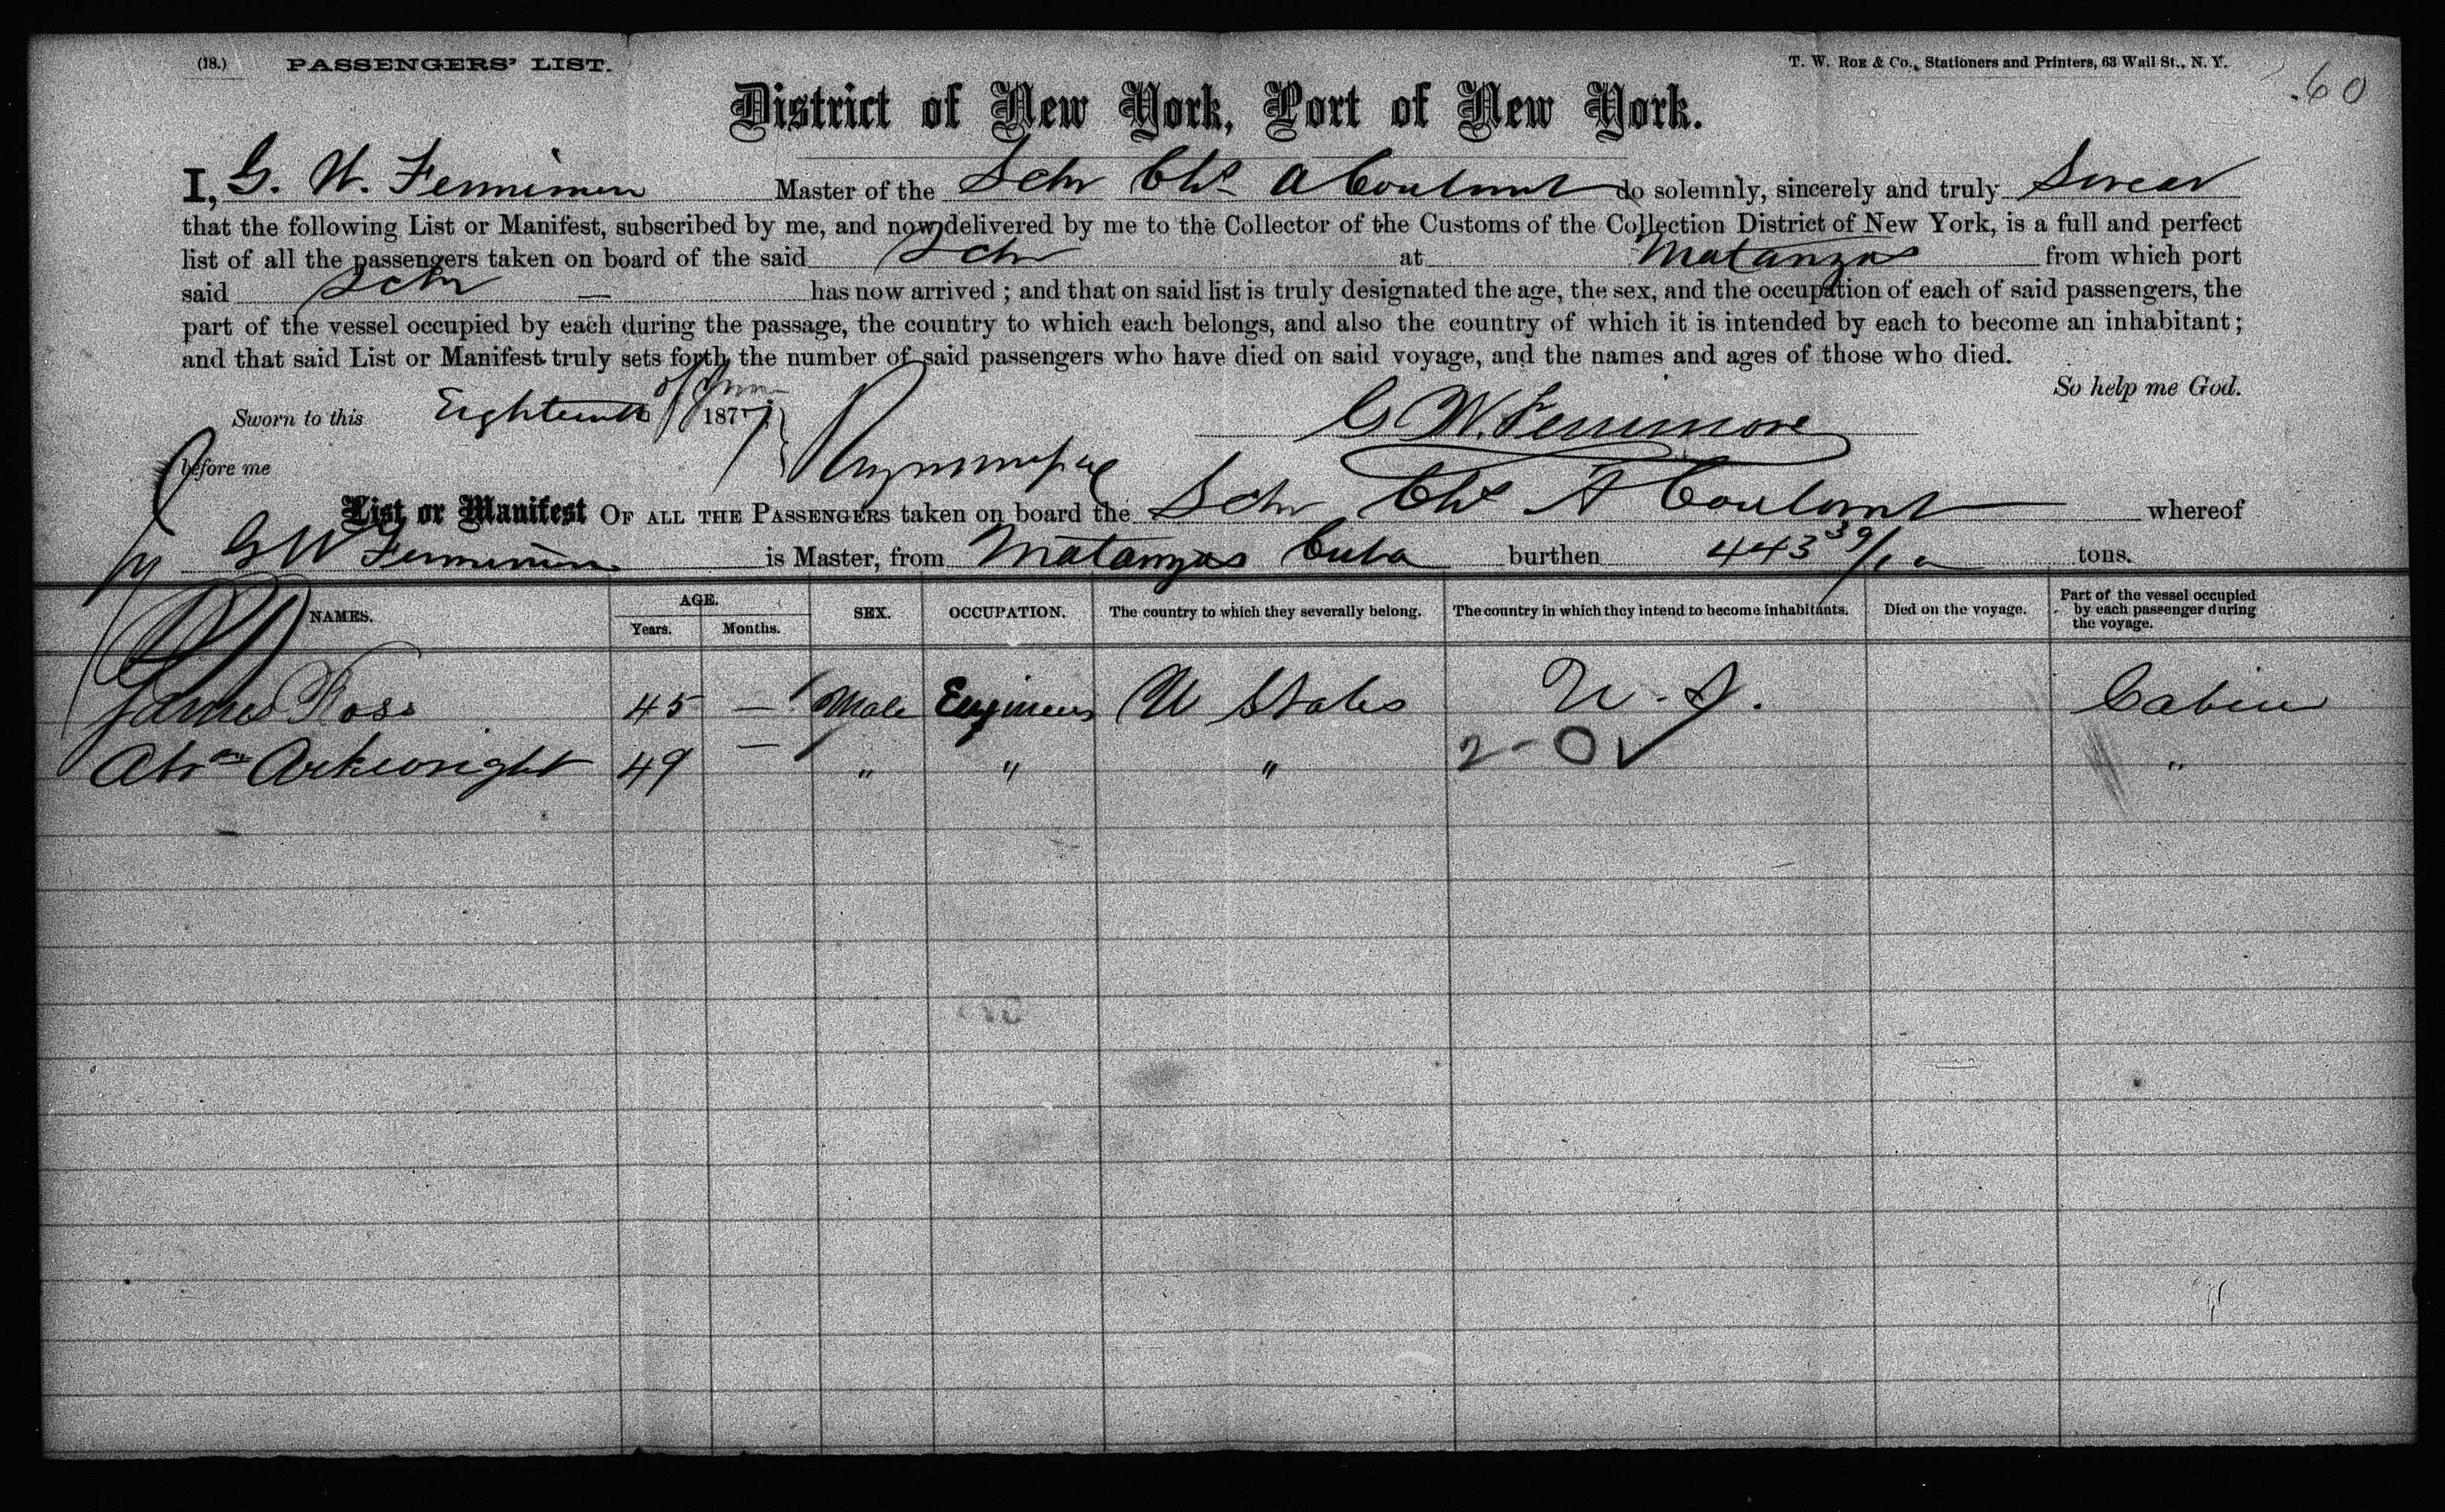 (18.) PASSENGERS' LIST. T. W. ROE & Co., Stationers and Printers, 63 Wall St., N. Y.
60
District of New York, Port of New York.
I, G. W. Fennimore Master of the Schr Chs A Coulomb do solemnly, sincerely and truly Swear
that the following List or Manifest, subscribed by me, and now delivered by me to the Collector of the Customs of the Collection District of New York, is a full and perfect
list of all the passengers taken on board of the said Schr at Matanzas from which port
said Schr — has now arrived ; and that on said list is truly designated the age, the sex, and the occupation of each of said passengers, the
part of the vessel occupied by each during the passage, the country to which each belongs, and also the country of which it is intended by each to become an inhabitant ;
and that said List or Manifest truly sets forth the number of said passengers who have died on said voyage, and the names and ages of those who died.
So help me God.
Sworn to this Eighteenth of 1877
G W. Fennimore
before me
List or Manifest OF ALL THE PASSENGERS taken on board the Schr Chs A Coulomb whereof
G W Fennimore is Master, from Matanzas Cuba burthen 443 39/ tons.
NAMES. AGE. Years. Months. SEX. OCCUPATION. The country to which they severally belong. The country in which they intend to become inhabitants. Died on the voyage. Part of the vessel occupied by each passenger during the voyage.
James Ross 45 — Male Engineer U States U. S. Cabin
Abrm Arkwright 49 — " " " "
2-0 ✓